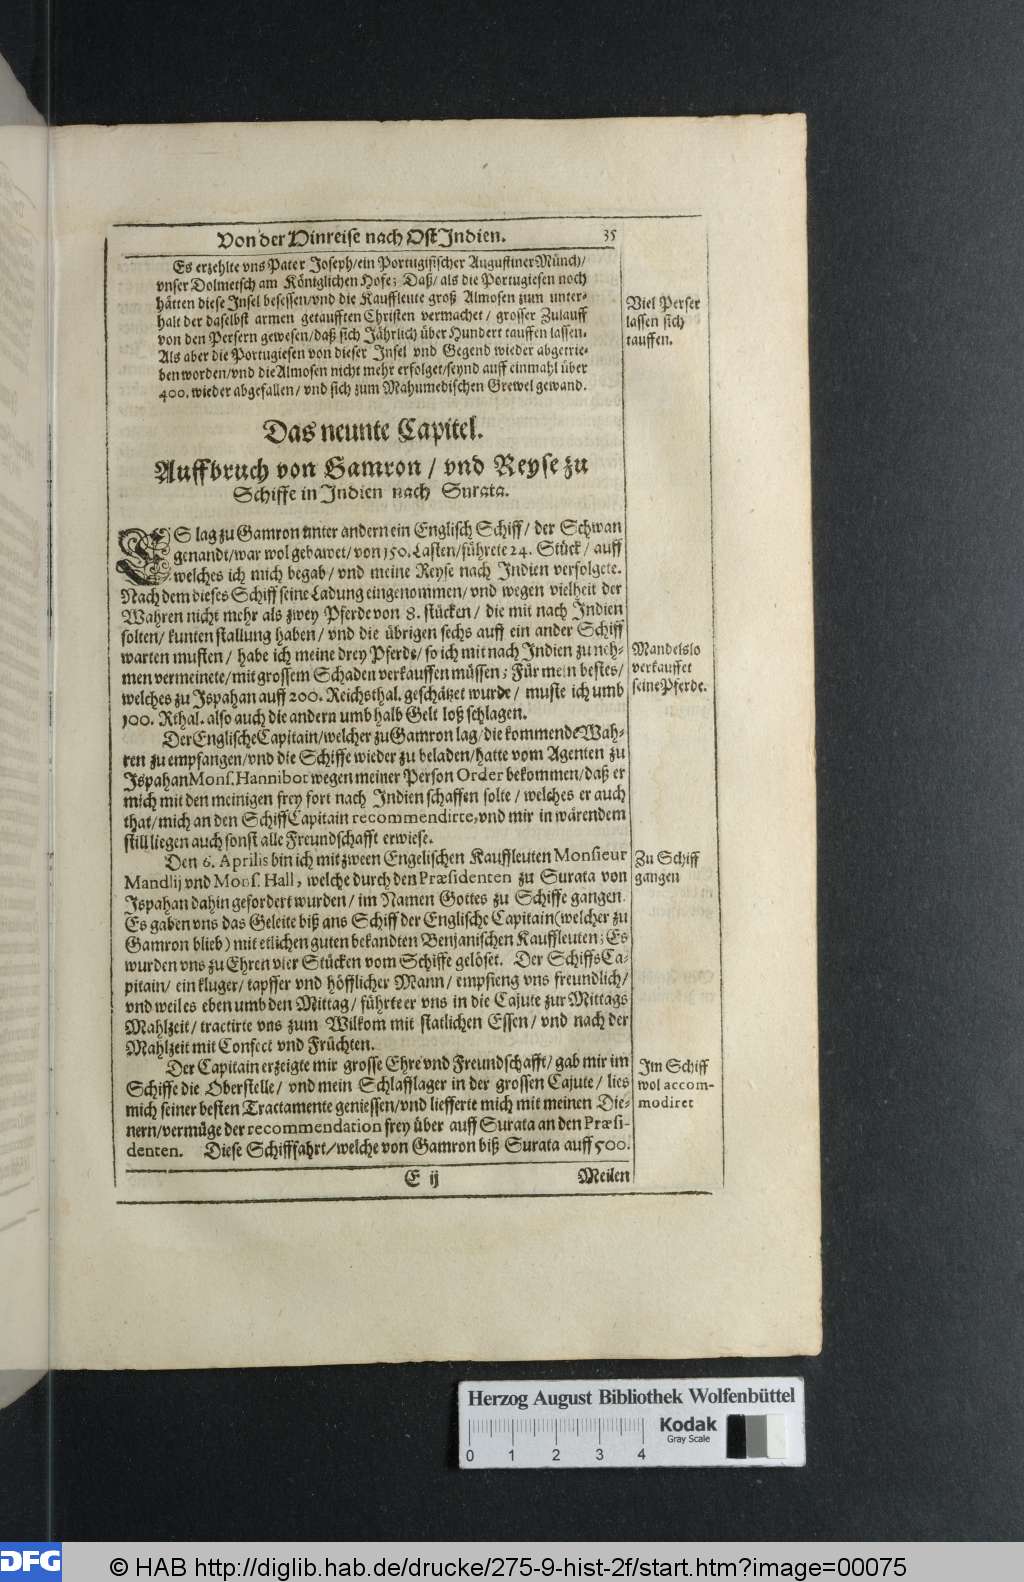 Von der Hinreise nach Ost Indien. 35
Es erzehlte vns Pater Joseph/ein Portugisischer Augustiner Münch/
vnser Dolmetsch am Königlichen Hofe; Daß/als die Portugiesen noch
hätten diese Insel besessen/vnd die Kauffleute groß Almosen zun unter-
halt der daselbst armen getaufften Christen vermachet/ grosser Zulauff
von den Persern gewesen/daß sich Jährlich über Hundert tauffen lassen.
Als aber die Portugiesen von dieser Insel vnd Gegend wieder abgetrie-
ben worden/vnd die Almosen nicht mehr erfolget/seynd auff einmahl über
400. wieder abgefallen/ vnd sich zum Mahumedischen Grewel gewand.
Viel Perser
lassen sich
tauffen.
Das neunte Capitel.
Auffbruch von Gamron / vnd Reyse zu
Schiffe in Indien nach Surata.
ES lag zu Gamron unter andern ein Englisch Schiff/ der Schwan
genandt/war wol gebawet/von 150. Lasten/führete 24. Stück/ auff
welches ich mich begab/ vnd meine Reyse nach Indien verfolgete.
Nach dem dieses Schiff seine Ladung eingenommen/vnd wegen vielheit der
Wahren nicht mehr als zwey Pferde von 8. stücken/ die mit nach Indien
solten/ kunten stallung haben/ vnd die übrigen sechs auff ein ander Schiff
warten musten/ habe ich meine drey Pferde/so ich mit nach Indien zu neh-
men vermeinete/mit grossem Schaden verkauffen müssen; Für mein bestes/
welches zu Ispahan auff 200. Reichsthal. geschätzet wurde/ muste ich umb
100. Rthal. also auch die andern umb halb Gelt loß schlagen.
Mandelslo
verkauffet
seine Pferde.
Der Englische Capitain/welcher zu Gamron lag/die kommende Wah-
ren zu empfangen/vnd die Schiffe wieder zu beladen/hatte vom Agenten zu
Ispahan Mons. Hannibot wegen meiner Person Order bekommen/daß er
mich mit den meinigen frey fort nach Indien schaffen solte/ welches er auch
that/mich an den Schiff Capitain recommendirte,vnd mir in wärendem
still liegen auch sonst alle Freundschafft erwiese.
Den 6. Aprilis bin ich mit zween Engelischen Kauffleuten Monsieur
Mandlij vnd Mons. Hall, welche durch den Præsidenten zu Surata von
Ispahan dahin gefordert wurden/ im Namen Gottes zu Schiffe gangen.
Es gaben vns das Geleite biß ans Schiff der Englische Capitain (welcher zu
Gamron blieb) mit etlichen guten bekandten Benjanischen Kauffleuten; Es
wurden vns zu Ehren vier Stücken vom Schiffe gelöset. Der Schiffs Ca-
pitain/ ein kluger/ tapffer vnd höfflicher Mann/ empfieng vns freundlich/
vnd weil es eben umb den Mittag/ führte er vns in die Cajute zur Mittags
Mahlzeit/ tractirte vns zum Wilkom mit statlichen Essen/ vnd nach der
Mahlzeit mit Confect vnd Früchten.
Zu Schiff
gangen
Der Capitain erzeigte mir grosse Ehre vnd Freundschafft/ gab mir im
Schiffe die Oberstelle/ vnd mein Schlafflager in der grossen Cajute/ lies
mich seiner besten Tractamente geniessen/vnd liefferte mich mit meinen Die-
nern/vermüge der recommendation frey über auff Surata an den Præsi-
denten. Diese Schifffahrt/welche von Gamron biß Surata auff 500.
Im Schiff
wol accom-
modiret
E ij Meilen
Herzog August Bibliothek Wolfenbüttel
Kodak
Gray Scale
0 1 2 3 4
DFG © HAB http://diglib.hab.de/drucke/275-9-hist-2f/start.htm?image=00075